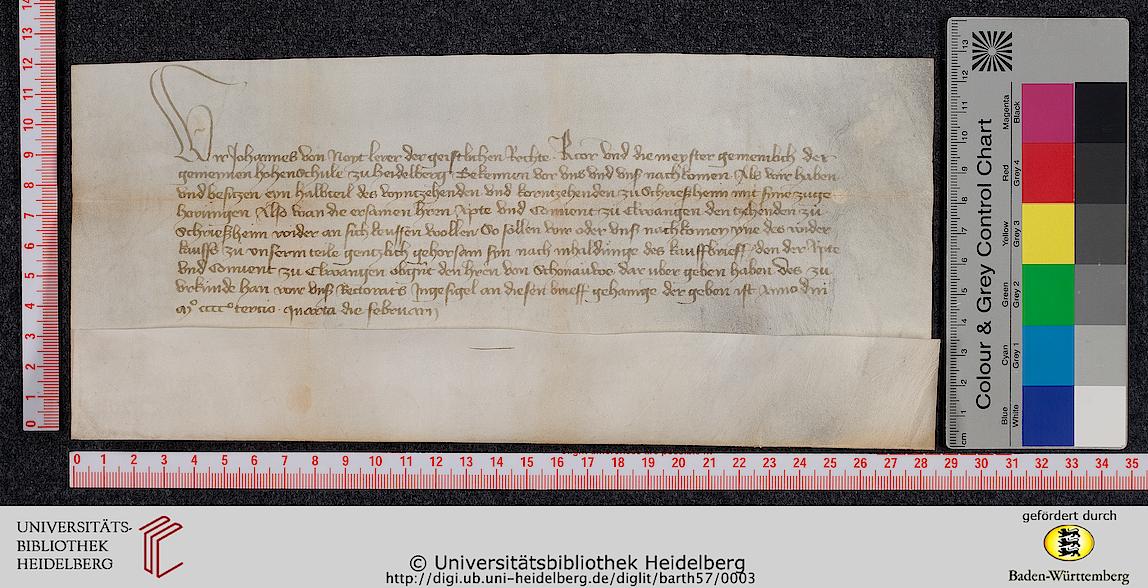 Wir Johannes von Noyt lerer der geistlichen Rechte Rector vnd die meyster gemeinlich der
gemeinen hohenschule zu heidelberg Bekennen vor vns vnd vnß nachkomen Als wir haben
vnd besitzen eyn halbteil des wyntzehenden vnd korntzehenden zu Schrießheim mit sime zuge
horungen Also wan die ersamen hren Apte vnd Conuent zu Elwangen den tzehenden zu
Schrießheim wider an sich keuffen wollen So sollen wir oder vnß nachkomen yne des wider
kauffs zu vnserm teile gentzlich gehorsam syn nach inhaldunge des kauffbrieff den der Apte
vnd Conuent zu Elwangen obgnt den hren von Schonauwe dar uber geben haben Des zu
vrkunde han wir vnß Rectorats Ingesigel an diesen brieff gehange der geben ist Anno dni
mº ccccº tertio quarta die februarij
UNIVERSITÄTS-
BIBLIOTHEK
HEIDELBERG
© Universitätsbibliothek Heidelberg
http://digi.ub.uni-heidelberg.de/diglit/barth57/0003
gefördert durch
Baden-Württemberg
Colour & Grey Control Chart
Blue Cyan Green Yellow Red Magenta
White Grey 1 Grey 2 Grey 3 Grey 4 Black
cm 1 2 3 4 5 6 7 8 9 10 11 12 13
0 1 2 3 4 5 6 7 8 9 10 11 12 13 14
0 1 2 3 4 5 6 7 8 9 10 11 12 13 14 15 16 17 18 19 20 21 22 23 24 25 26 27 28 29 30 31 32 33 34 35